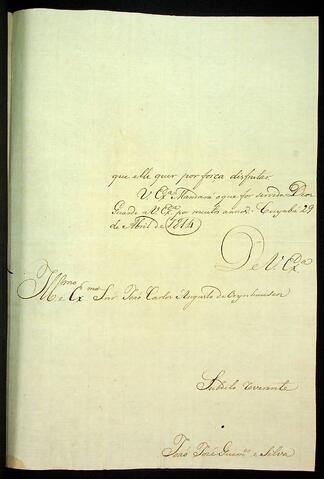 que elle quer por força disfrutar.
V. Exa. Mandará o que for servido. Deos
Guarde a V. Exa. por muitos annos. Cuyabá 29
de Abril de 1814
De V. Exa.
Illmo. e Exmo. Snr. João Carlos Augusto de Oeynhausen
Subdito reverente
João José Guim.es e Silva